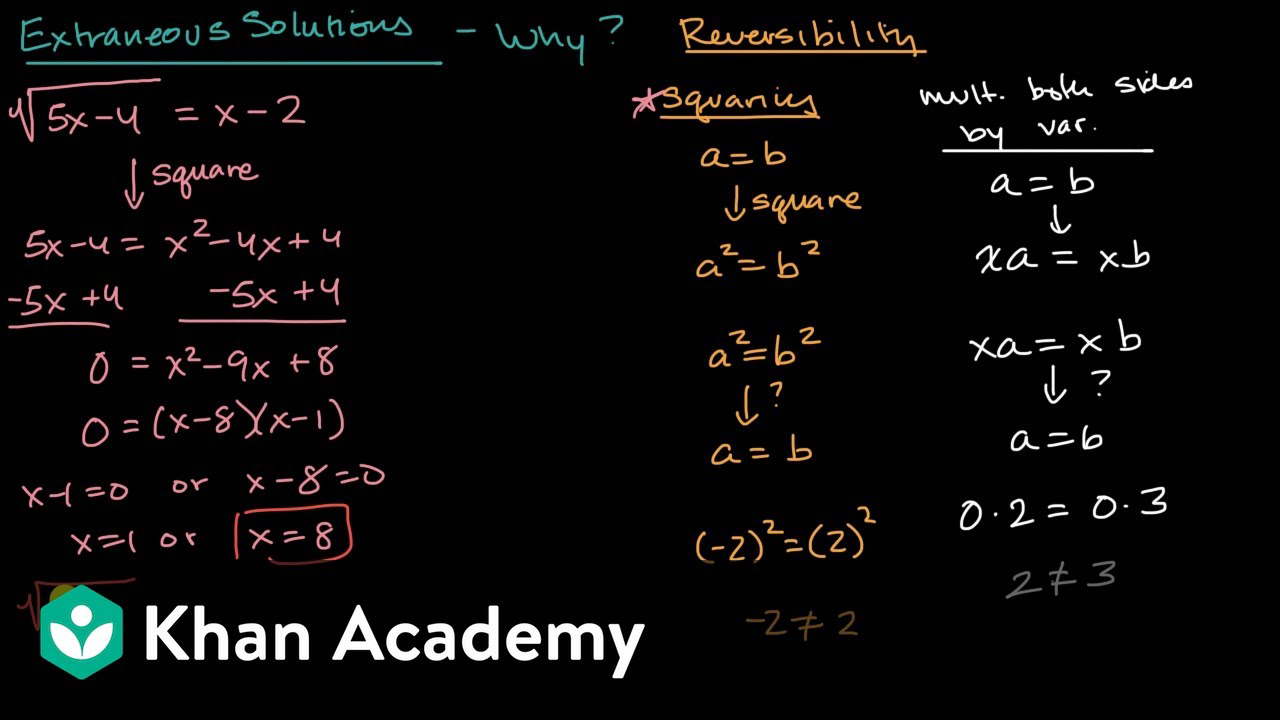 Extraneous Solutions - Why?
√5x-4 = x-2
↓ square
5x-4 = x²-4x+4
-5x +4 -5x +4
0 = x²-9x+8
0 = (x-8)(x-1)
x-1=0 or x-8=0
x=1 or x=8
√
Reversibility
*Squaring
a=b
↓ square
a²=b²
a²=b²
↓ ?
a = b
(-2)²=(2)²
-2≠2
mult. both sides
by var.
a=b
↓
xa = xb
xa = xb
↓ ?
a=b
0·2 = 0·3
2≠3
Khan Academy